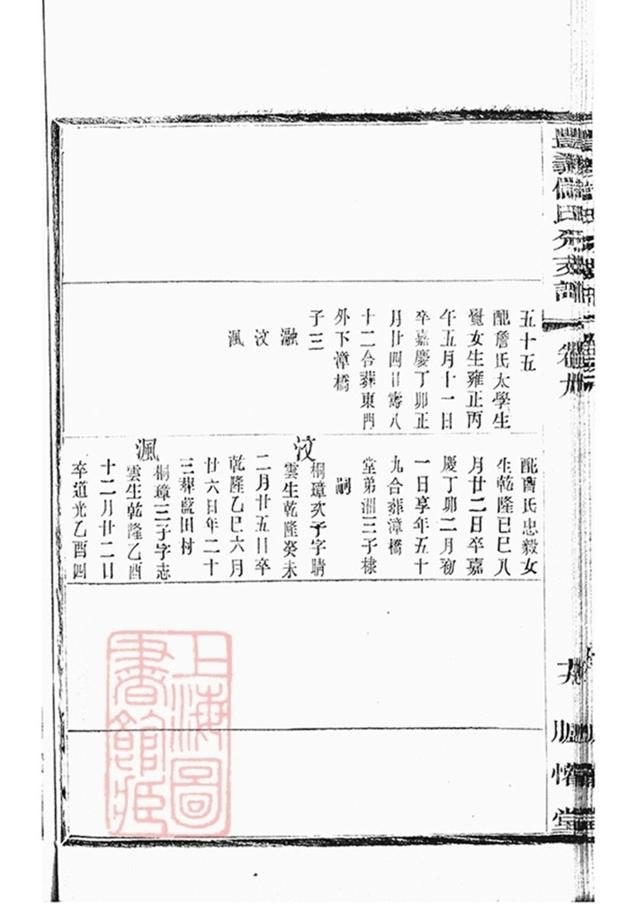 豐義儲氏分支譜
卷九
五十五
配詹氏太學生
覺女生雍正丙
午五月十一日
卒嘉慶丁卯正
月廿四日壽八
十二合葬東門
外下漳橋
子三
瀜
汶
渢
配曹氏忠毅女
生乾隆己巳八
月廿二日卒嘉
慶丁卯二月初
一日享年五十
九合葬漳橋
堂弟洲三子棣
嗣
汶
桐璋次子字晴
雲生乾隆癸未
二月廿五日卒
乾隆乙巳六月
廿六日年二十
三葬藍田村
渢
桐璋三子字志
雲生乾隆乙酉
十二月廿二日
卒道光乙酉四
上海圖
書館藏